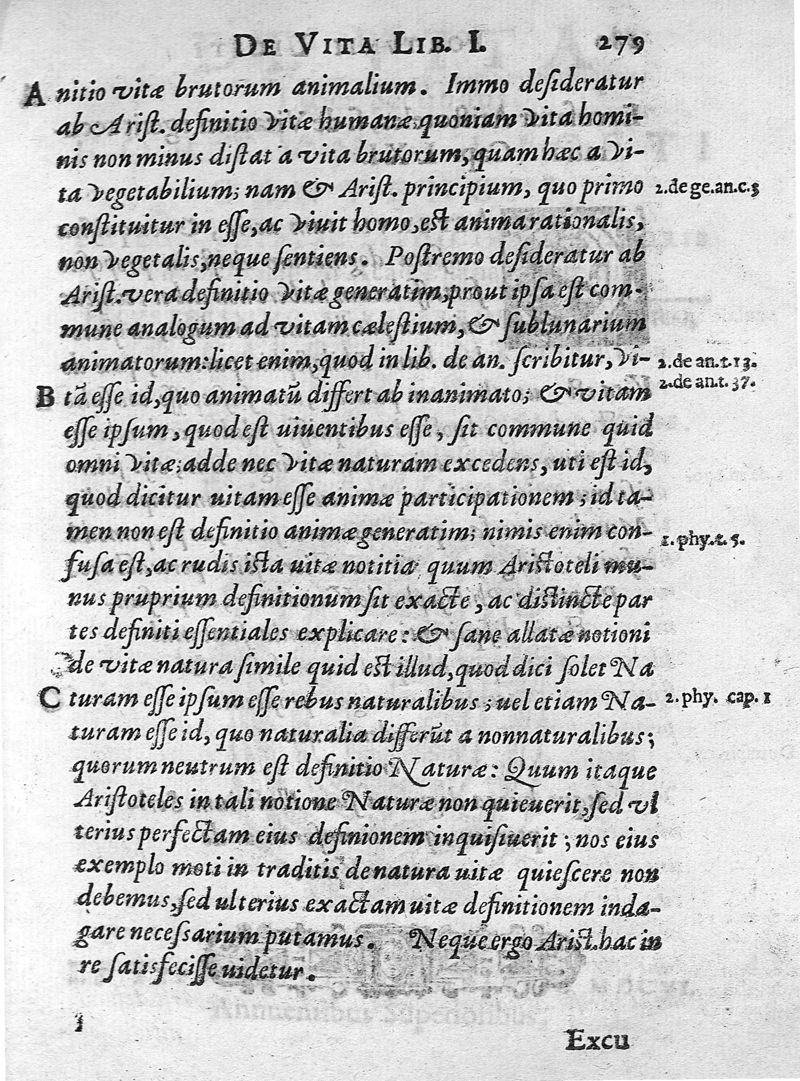 DE VITA LIB. I. 279
A nitio vitæ brutorum animalium. Immo desideratur
ab Arist. definitio vitæ humanæ quoniam vita homi-
nis non minus distat a vita brutorum, quam hæc a vi-
ta vegetabilium; nam & Arist. principium, quo primo 2. de ge. an. c. 3
constituitur in esse, ac viuit homo, est anima rationalis,
non vegetalis, neque sentiens. Postremo desideratur ab
Arist. vera definitio vitæ generatim, prout ipsa est com-
mune analogum ad vitam cælestium, & sublunarium
animatorum: licet enim, quod in lib. de an. scribitur, vi- 2. de an. t. 13.
B tā esse id, quo animatū differt ab inanimato; & vitam 2. de an. t. 37.
esse ipsum, quod est uiuentibus esse, sit commune quid
omni vitæ; adde nec vitæ naturam excedens, uti est id,
quod dicitur uitam esse animæ participationem; id ta-
men non est definitio animæ generatim; nimis enim con- 1. phy. t. 5.
fusa est, ac rudis ista uitæ notitia quum Aristoteli mu-
nus pruprium definitionum sit exacte, ac distincte par
tes definiti essentiales explicare: & sane allatæ notioni
de vitæ natura simile quid est illud, quod dici solet Na
C turam esse ipsum esse rebus naturalibus; uel etiam Na- 2. phy. cap. 1
turam esse id, quo naturalia differūt a nonnaturalibus;
quorum neutrum est definitio Naturæ: Quum itaque
Aristoteles in tali notione Naturæ non quieuerit, sed vl
terius perfectam eius definionem inquisiuerit; nos eius
exemplo moti in traditis de natura uitæ quiescere non
debemus, sed ulterius exactam uitæ definitionem inda-
gare necessarium putamus. Neque ergo Arist. hac in
re satisfecisse uidetur.
Excu